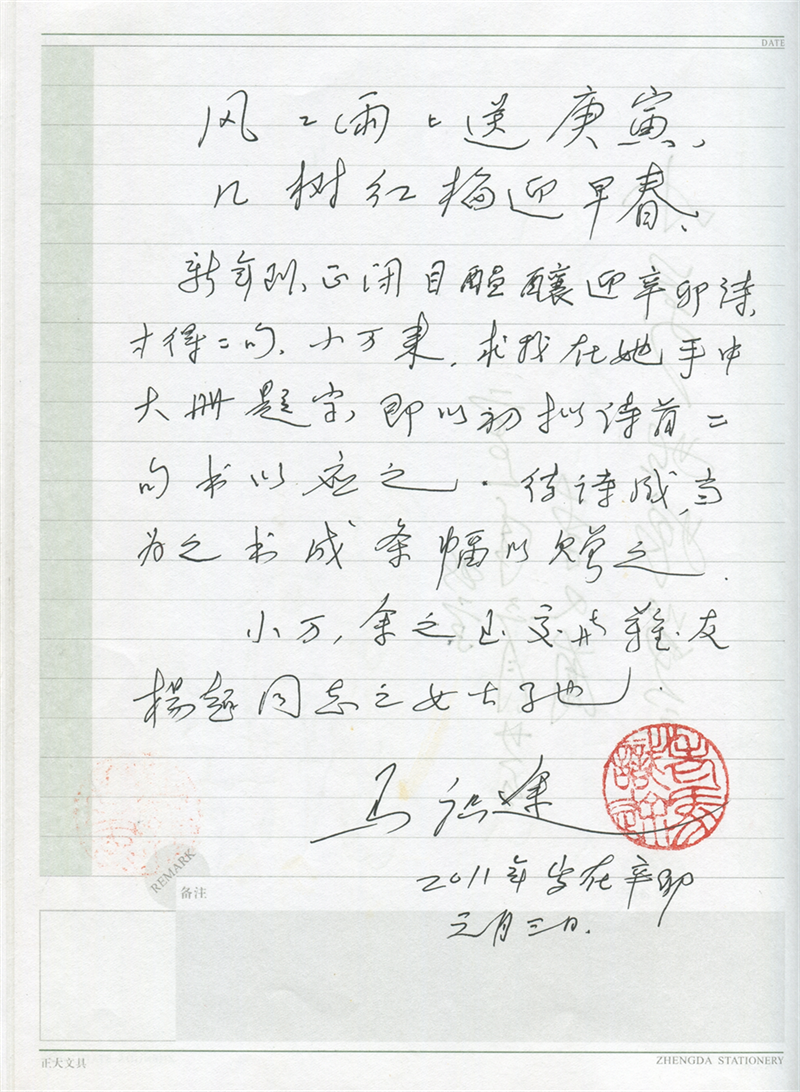 DATE
风々雨々送庚寅、
几树红梅迎早春;
新年到,正闭目酝酿迎辛卯诗,
才得二句,小万来,求我在她手中
大册题字,即以初拟诗首二
句书以应之。待诗成,当
为之书成条幅以赠之.
小万,余之至交,难友
杨超同志之女公子也.
马识途
2011年岁在辛卯
元月三日.
REMARK
备注
正大文具
ZHENGDA STATIONERY